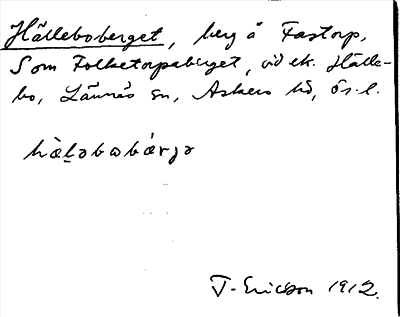 Hälleboberget, berg å Fastorp,
Som Folketorpsberget, vid ek. Hälle-
bo, Lännäs sn, Askers hd, Ös.l.
hàḷəbωbærjə
T. Ericson 1912.